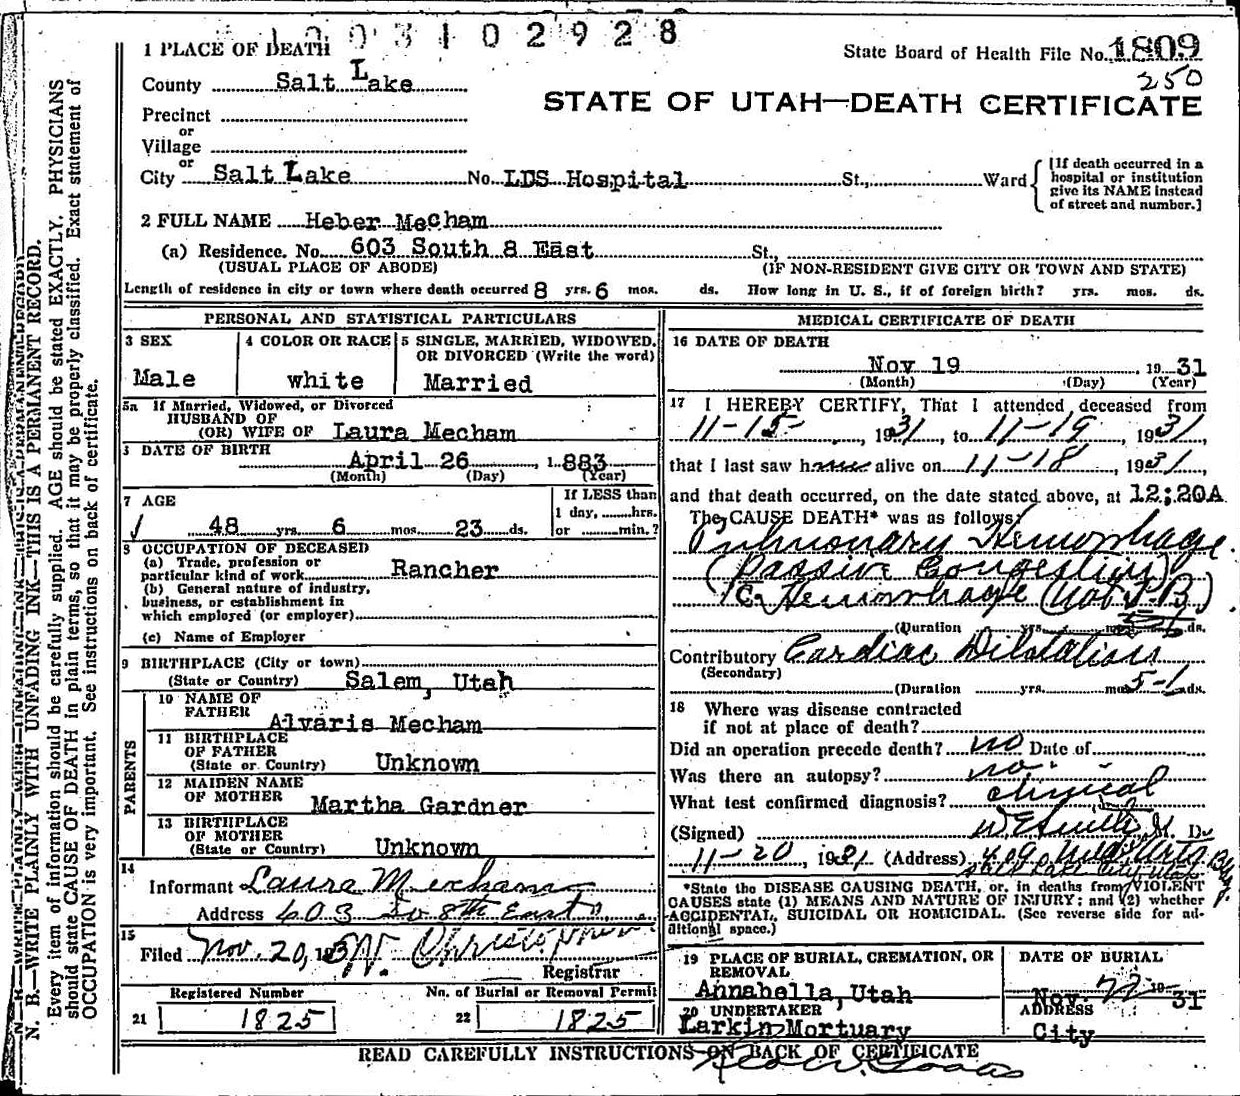 1003102928
1 PLACE OF DEATH
State Board of Health File No. 1809
250
County Salt Lake
STATE OF UTAH—DEATH CERTIFICATE
Precinct
or
Village
or
City Salt Lake No. LDS Hospital St., Ward
[If death occurred in a
hospital or institution
give its NAME instead
of street and number.]
2 FULL NAME Heber Mecham
(a) Residence. No. 603 South 8 East St.,
(USUAL PLACE OF ABODE) (IF NON-RESIDENT GIVE CITY OR TOWN AND STATE)
Length of residence in city or town where death occurred 8 yrs. 6 mos. ds. How long in U. S., if of foreign birth? yrs. mos. ds.
PERSONAL AND STATISTICAL PARTICULARS
3 SEX
Male
4 COLOR OR RACE
white
5 SINGLE, MARRIED, WIDOWED,
OR DIVORCED (Write the word)
Married
5a If Married, Widowed, or Divorced
HUSBAND OF
(OR) WIFE OF Laura Mecham
DATE OF BIRTH
April 26, 1883
(Month) (Day) (Year)
7 AGE
48 yrs. 6 mos. 23 ds.
If LESS than
1 day, hrs.
or min.?
8 OCCUPATION OF DECEASED
(a) Trade, profession or
particular kind of work Rancher
(b) General nature of industry,
business, or establishment in
which employed (or employer)
(c) Name of Employer
9 BIRTHPLACE (City or town)
(State or Country) Salem, Utah
PARENTS
10 NAME OF
FATHER
Alvaris Mecham
11 BIRTHPLACE
OF FATHER
(State or Country) Unknown
12 MAIDEN NAME
OF MOTHER
Martha Gardner
13 BIRTHPLACE
OF MOTHER
(State or Country) Unknown
14
Informant Laura Mecham
Address 603 So 8th East
15
Filed Nov. 20, 193
Registrar
Registered Number
21 1825
No. of Burial or Removal Permit
22 1825
MEDICAL CERTIFICATE OF DEATH
16 DATE OF DEATH
Nov 19, 1931
(Month) (Day) (Year)
17 I HEREBY CERTIFY, That I attended deceased from
11-15-, 1931, to 11-19, 1931,
that I last saw h alive on 11-18, 1931,
and that death occurred, on the date stated above, at 12:20A
The CAUSE DEATH* was as follows:
Pulmonary Hemorrhage.
(Passive Congestion)
c Hemorrhage (not T.B.)
(Duration yrs. mos. ds.
Contributory Cardiac Dilatation
(Secondary)
(Duration yrs. mos. ds.
18 Where was disease contracted
if not at place of death?
Did an operation precede death? no Date of
Was there an autopsy? no
What test confirmed diagnosis? clinical
(Signed) M. D.
11-20, 1931 (Address) 409 Med. Arts Bldg.
Salt Lake City Utah
*State the DISEASE CAUSING DEATH, or, in deaths from VIOLENT
CAUSES state (1) MEANS AND NATURE OF INJURY; and (2) whether
ACCIDENTAL, SUICIDAL OR HOMICIDAL. (See reverse side for ad-
ditional space.)
19 PLACE OF BURIAL, CREMATION, OR
REMOVAL
Annabella, Utah
DATE OF BURIAL
Nov. 22 1931
20 UNDERTAKER
Larkin Mortuary
ADDRESS
City
READ CAREFULLY INSTRUCTIONS ON BACK OF CERTIFICATE
N. B.—WRITE PLAINLY WITH UNFADING INK—THIS IS A PERMANENT RECORD.
Every item of information should be carefully supplied. AGE should be stated EXACTLY. PHYSICIANS
should state CAUSE OF DEATH in plain terms, so that it may be properly classified. Exact statement of
OCCUPATION is very important. See instructions on back of certificate.